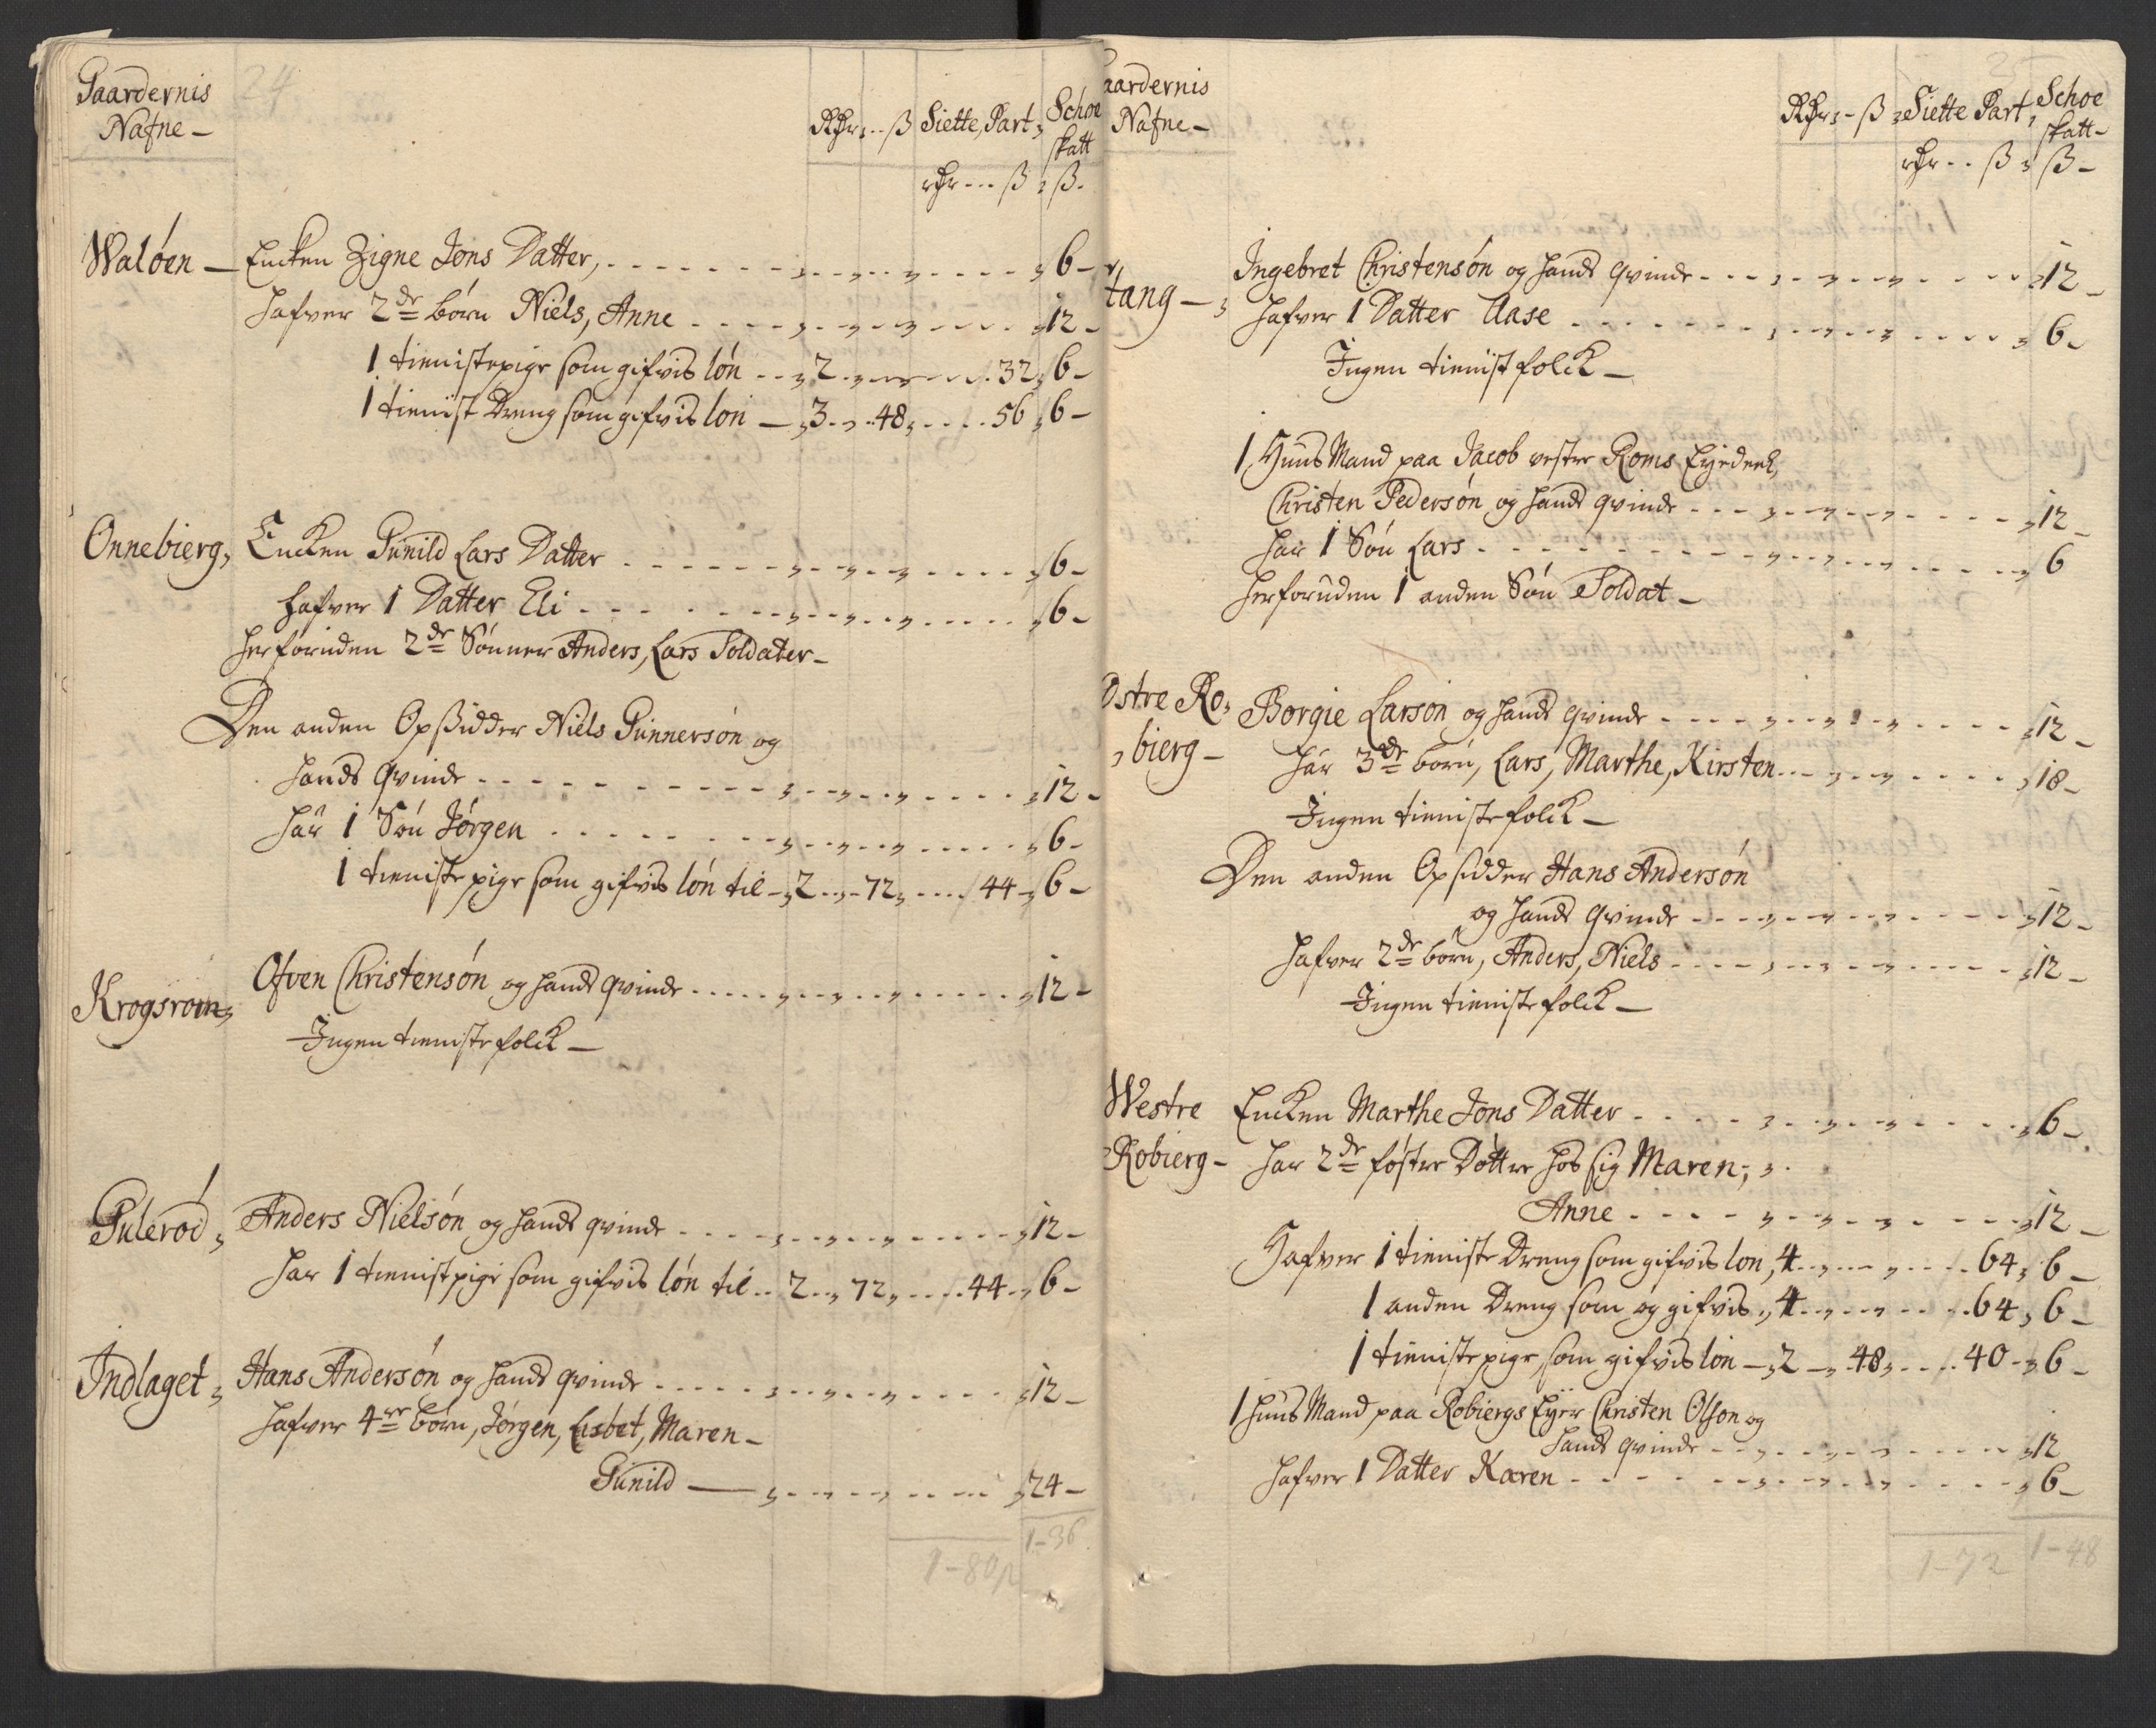 Gaardernis
Nafne –
24
Rdr: ß Siette, Part, Schoe
skatt
rdr ß ß.
Waløen – Encken Zigne Jons Datter, 6 –
hafver 2de børn Niels, Anne 12 –
1 tienistepige som gifvis løn 2 32 6 –
1 tienist dreng som gifvis løn – 3 48 56 6 –
Onnebierg, Encken Gunild Lars Datter 6 –
hafver 1 Datter Eli 6 –
herforuden 2de Sønner Anders, Lars Soldater –
Den anden Opsidder Niels Gunnersøn og
hands qvinde 12 –
har 1 Søn Jørgen 6 –
1 tieniste pige som gifvis løn til – 2 72 44 – 6 –
Krogsrom, Ofven Christensøn og hands qvinde 12 –
Ingen tienistefolck –
Gulerød, Anders Nielsøn og hands qvinde 12 –
har 1 tienistpige som gifvis løn til 2 72 44 6 –
Indlaget, Hans Andersøn og hands qvinde 12 –
hafver 4re børn, Jørgen, Lisbet, Maren –
Gunild – 24 –
1–36
1–80
aardernis
Nafne –
Rdr: – ß Siette Part, Schoe
skatt –
rdr ß ß –
tang – Ingebret Christensøn og hands qvinde 12 –
hafver 1 Datter Aase 6 –
Ingen tienistfolck –
1 Huus Mand paa Jacob vestre Roms Eyedeel,
Christen Pedersøn og hands qvinde 12 –
har 1 Søn Lars 6
herforuden 1 anden Søn Soldat –
Østre Ro, Borgie Larsøn og hands qvinde 12 –
bierg – har 3de børn, Lars, Marthe, Kirsten 18 –
Ingen tienistefolck –
Den anden Opsidder Hans Andersøn
og hands qvinde 12 –
hafver 2de børn, Anders, Niels 12 –
Ingen tienistefolck –
Westre Encken Marthe Jons Datter 6 –
Robierg – har 2de føster Døttre hos sig Maren,
Anne 12 –
Hafver 1 tieniste Dreng som gifvis løn, 4 64 6 –
1 anden Dreng som og gifvis, 4 64 6 –
1 tienistepige, som gifvis løn – 2 – 48 40 – 6 –
1 huus Mand paa Robiergs Eyer Christen Olson og
hands qvinde 12
hafver 1 Datter Karen 6 –
1–72 1–48